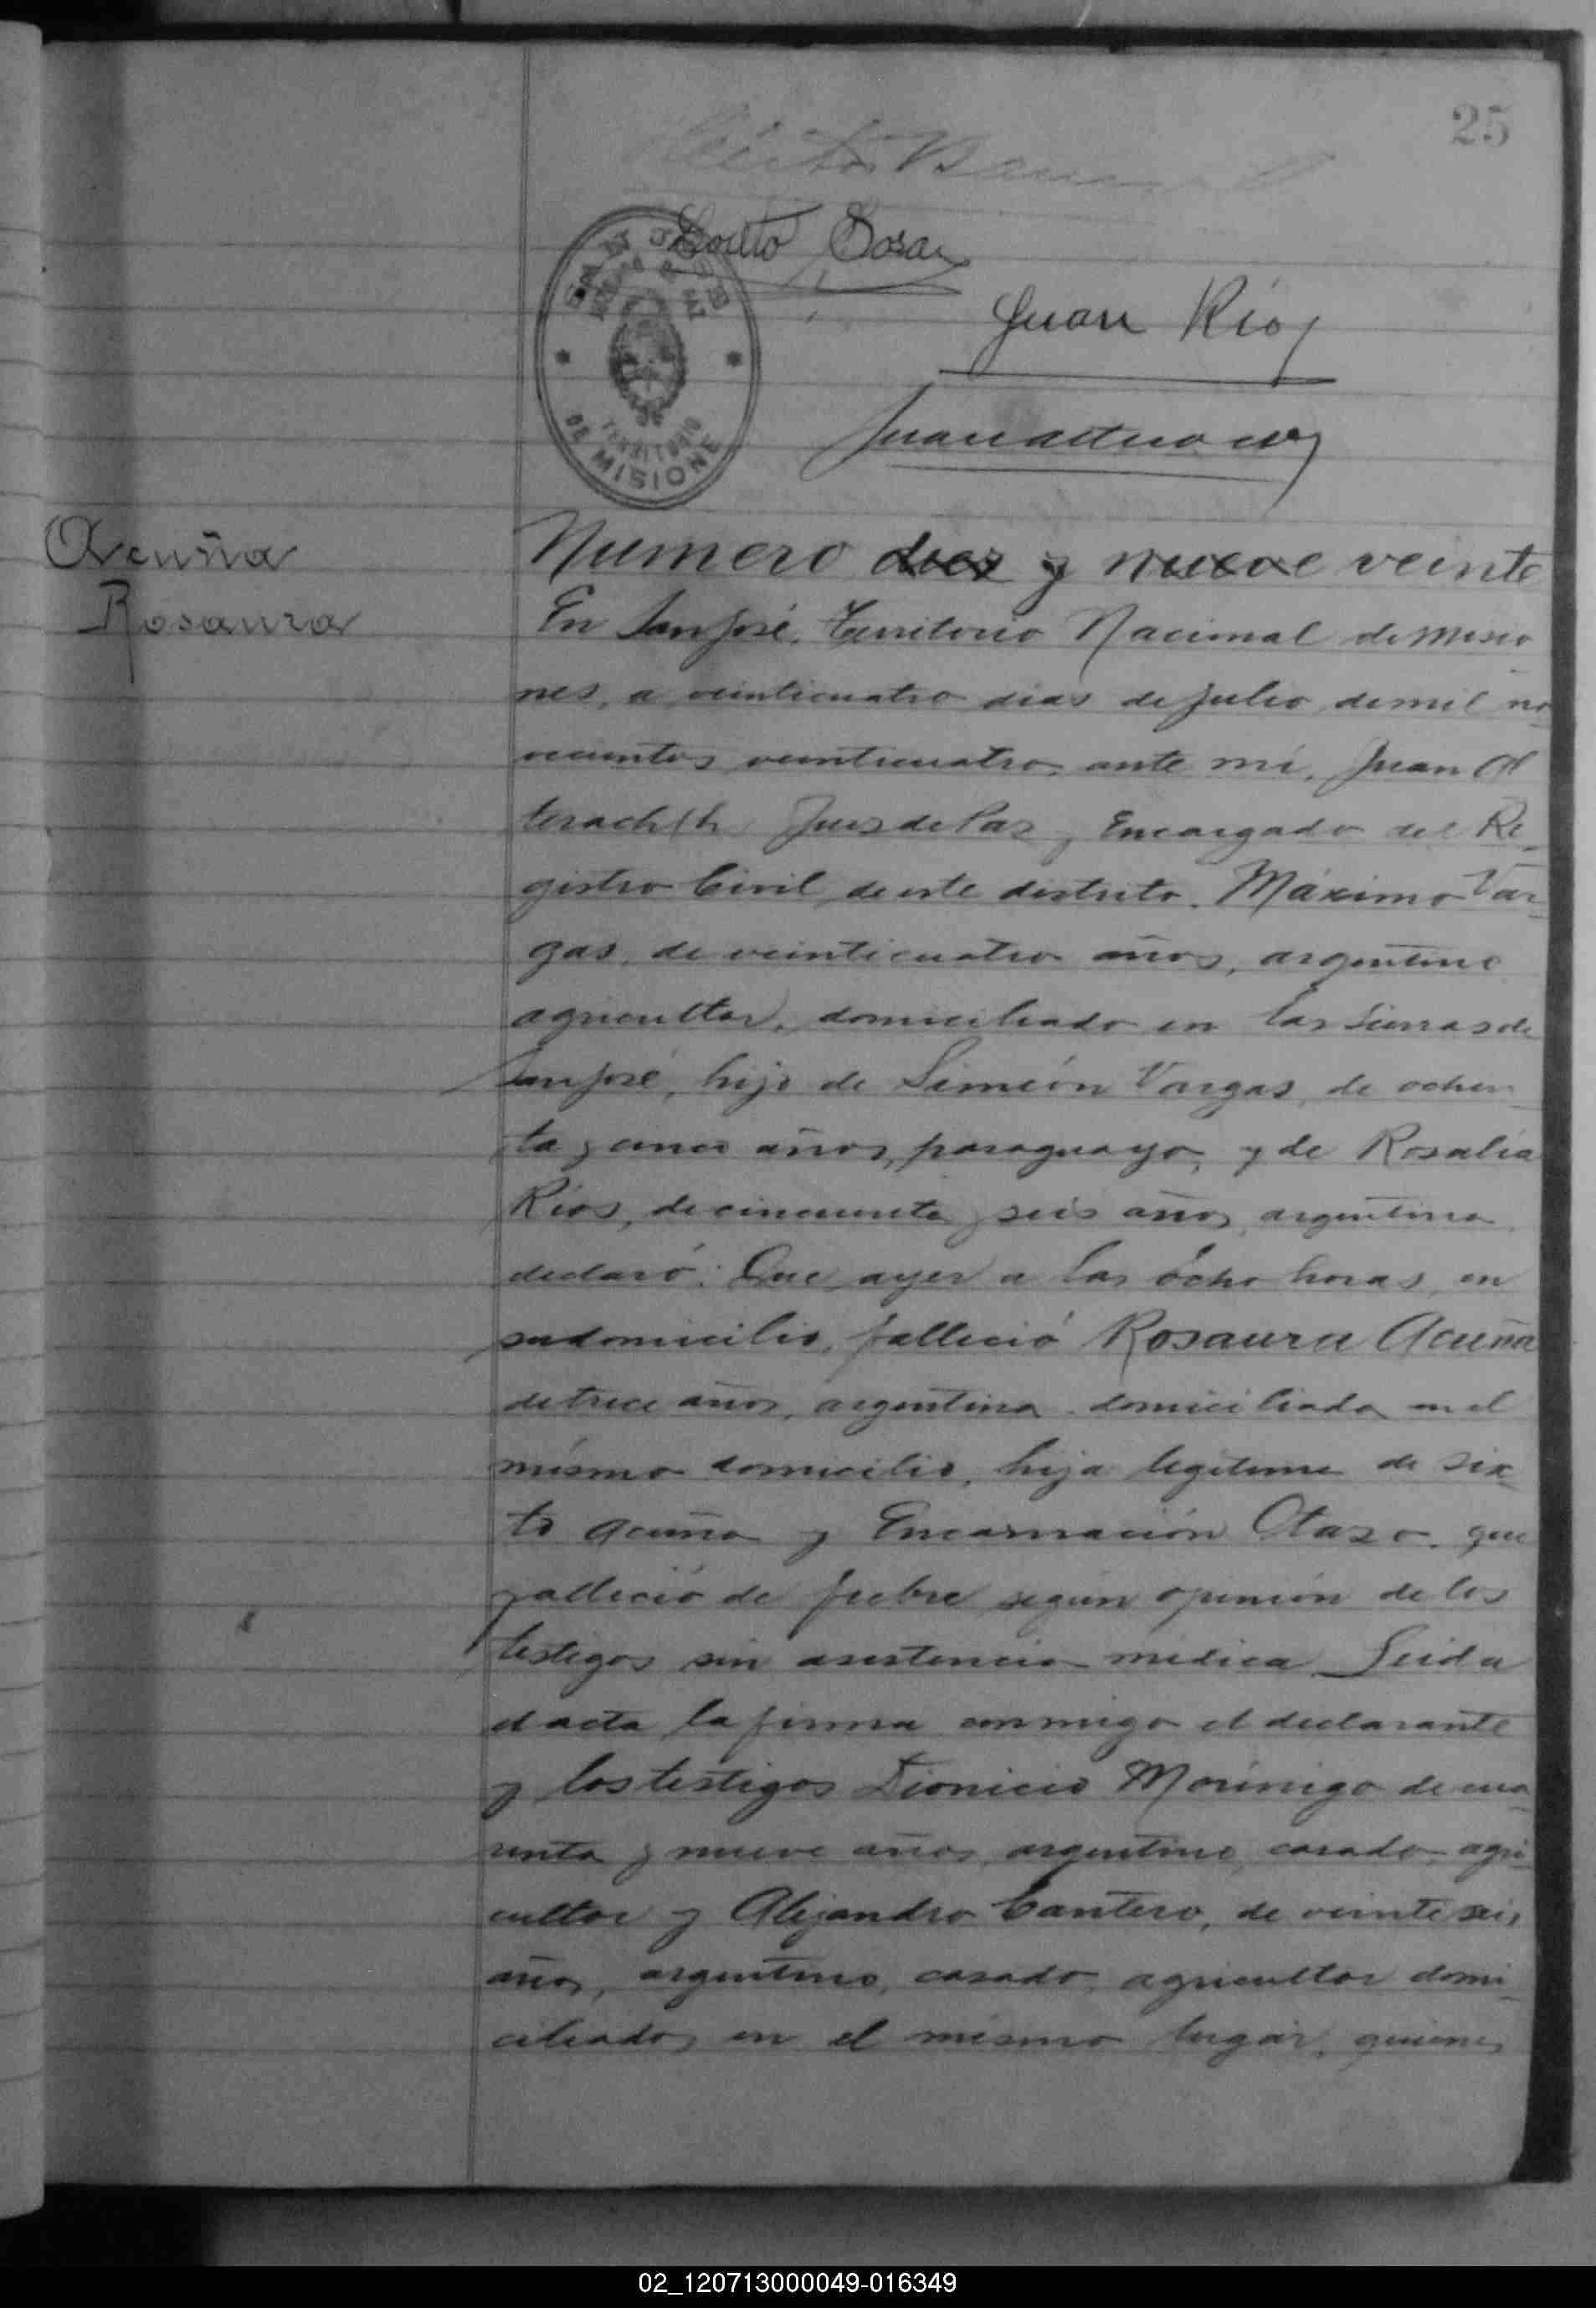 25
Juan Ríos
TERRITORIO
DE MISIONES
Acuña
Rosaura
Numero diez y nueve veinte
En San José, Territorio Nacional de Misio
nes, a veinticuatro dias de Julio de mil no
vecientos veinticuatro, ante mí, Juan Al
terach (h Juez de Paz y Encargado del Re-
gistro Civil de este distrito. Máximo Var-
gas, de veinticuatro años, argentino
agricultor, domiciliado en las Sierras de
San José, hijo de Simeón Vargas, de ochen-
ta y cinco años, paraguayo, y de Rosalía
Ríos, de cincuenta y seis años, argentina,
declaró: Que ayer a las ocho horas, en
su domicilio, falleció Rosaura Acuña
de trece años, argentina, domiciliada en el
mismo domicilio, hija legítima de Six-
to Acuña y Encarnación Otazo, que
falleció de fiebre según opinión de los
testigos sin asistencia médica. Leida
el acta la firma conmigo el declarante
y los testigos Dionicio Morinigo de cua-
renta y nueve años, argentino, casado, agri-
cultor y Alejandro Cantero, de veinte seis
años, argentino, casado, agricultor domi-
ciliados en el mismo lugar, quienes
02_120713000049-016349